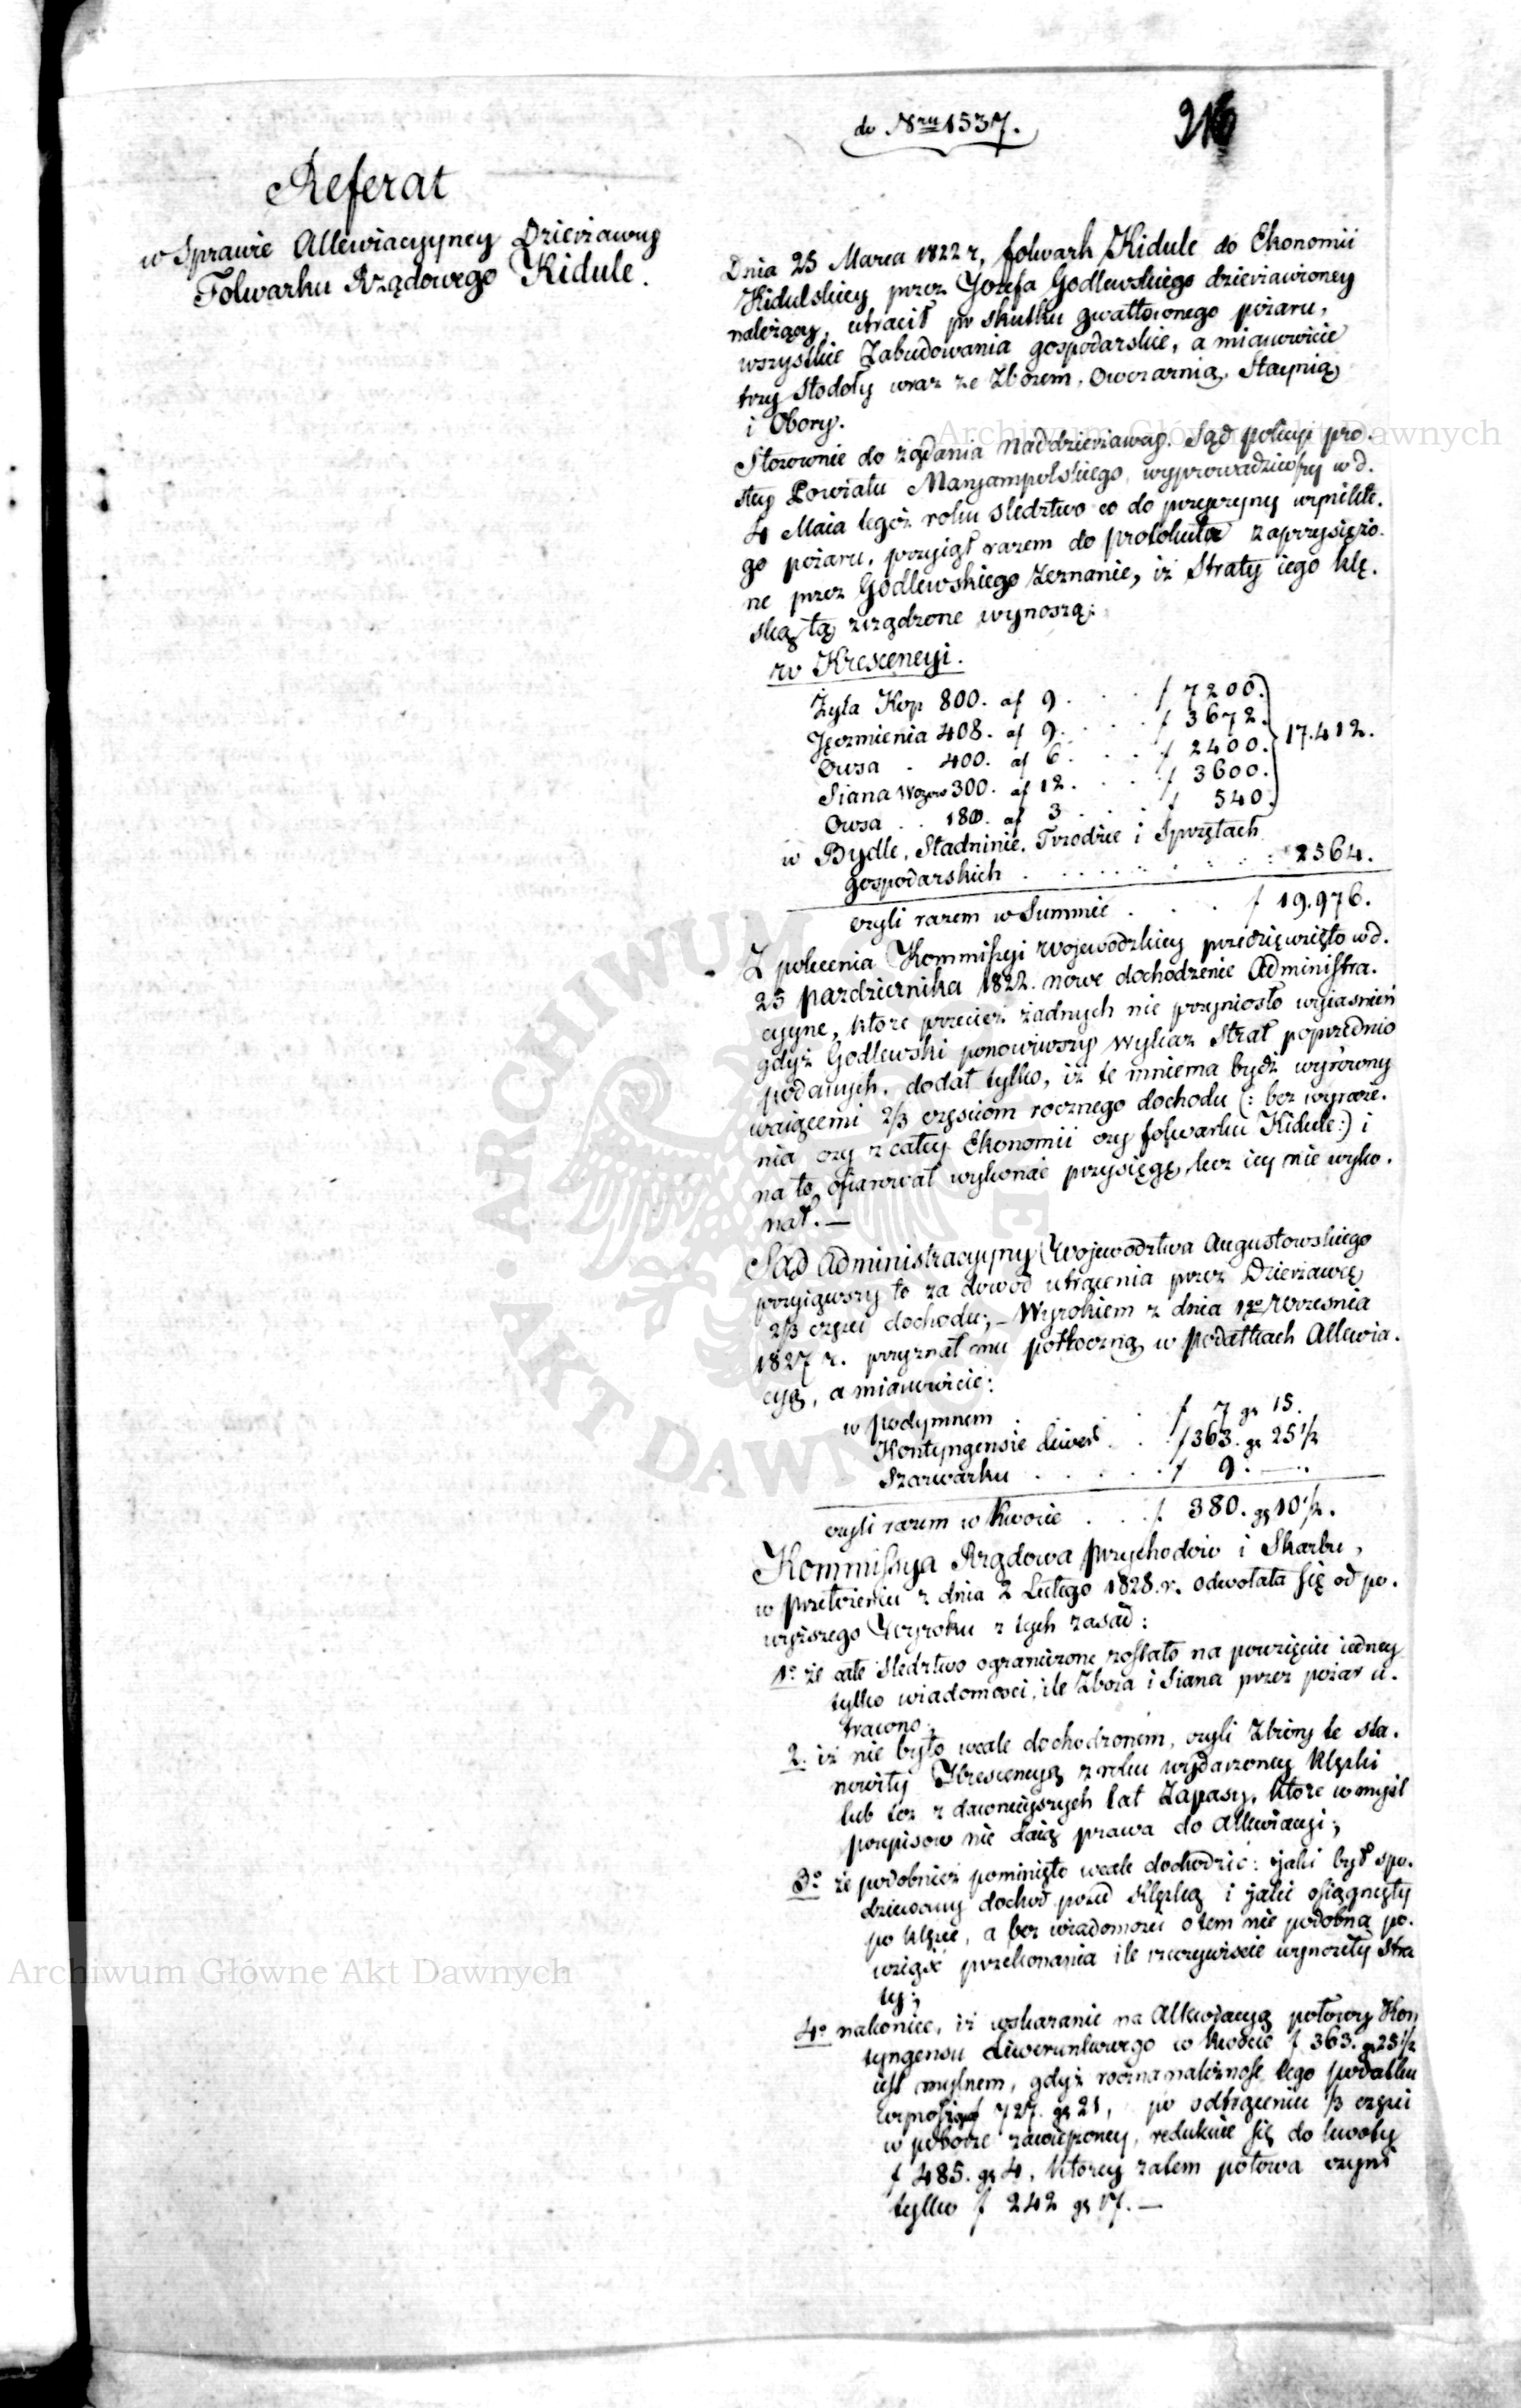 do Nru 1537.
216
Referat
w Sprawie Allewiacyyney Dzierżawcy
Folwarku Rządowego Kidule.
Dnia 25 Marca 1822 r, folwark Kidule do Ekonomii
Kidulskiey przez Jozefa Godlewskiego dzierżawioney
należący, utracił po skutku gwałtownego pożaru,
wszystkie Zabudowania gospodarskie, a mianowicie
trzy Stodoły wraz ze Zborem, Owczarnią, Staynią
i Obory.
Stosownie do żądania Naddzierżawcy, Sąd policyi pro-
stey Powiatu Maryampolskiego, wyprowadziwszy w d.
4 Maia tegoż roku sledztwo co do przyczyny wynikłe-
go pożaru, przyiął razem do protokułu zaprzysiężo-
ne przez Godlewskiego Zeznanie, iż Straty iego klę-
ską tą zrządzone wynoszą:
w Krescencyi.
Żyta Kop 800. af 9 . . . f 7200.
Jęczmienia 408. af 9. . . f 3672.
Owsa . 400. af 6. . . f 2400. 17.412.
Siana Wozow 300. af 12. . . f 3600.
Owsa . . 180. af 3 . . . f 540.
w Bydle, Stadninie, Trzodzie i Sprzętach
gospodarskich . . . . . . . 2564.
czyli razem w Summie . . . f 19.976.
Z polecenia Kommissyi Wojewodzkiey przedsięwzięto w d.
25 pazdziernika 1822. nowe dochodzenie Administra-
cyyne, które przecież żadnych nie przyniosło wyiasnień
gdyż Godlewski ponowiwszy wykaz Strat poprzednio
podanych, dodał tylko, iż te mniema bydź wyrówny
waiącemi 2/3 częściom rocznego dochodu (: bez wyraże-
nia czy z całey Ekonomii czy folwarku Kidule:) i
na to ofiarował wykonać przysięgę, lecz iey nie wyko-
nał. —
Sąd Administracyyny Wojewodztwa Augustowskiego
przyiąwszy to za dowód utracenia przez Dzierżawcę
2/3 części dochodu; — Wyrokiem z dnia 12o Wrzesnia
1827 r. przyznał mu półroczną w podatkach Allewia-
cyą, a mianowicie:
w podymnem . . . f 7 gr 15.
Kontyngensie liwer. . . f 363. gr 25 1/2
Szarwarku . . . . . f 9. —.
czyli razem w kwocie . . . f 380. gr 10 1/2.
Kommissya Rządowa Przychodow i Skarbu,
w przełożeniu z dnia 2 Lutego 1828. r. odwołała się od po-
wyższego Wyroku z tych zasad:
1o że całe Sledztwo ograniczone zostało na powzięciu iedney
tylko wiadomości, ile Zboża i Siana przez pożar u-
tracono;
2. iż nie było wcale dochodzonem, czyli Zbiory te sta-
nowiły Krescencyą z roku wydarzoney Klęski
lub też z dawnieyszych lat Zapasy, które w myśl
przepisow nie daią prawa do Allewiacyi;
3o że podobnież pominięto wcale dochodzić: jaki był spo-
dziewany dochod przed Klęską i jaki osiągnięty
po klęsce, a bez wiadomości o tem nie podobna po-
wziąść przekonania ile rzeczywiście wynosiły stra
ty;
4o nakoniec, iż wskazanie na Allewiacyą połowy Kon
tyngensu liwerunkowego w kwocie f 363. gr 25 1/2
iest mylnem, gdyż roczna należność tego podatku
wynosząca f 727. gr 21, po odtrąceniu 1/3 części
w poborze zawieszoney, redukuie się do kwoty
f 485. gr 4, którey zatem połowa czyni
tylko f 242 gr 17. —
Archiwum Główne Akt Dawnych
Archiwum Główne Akt Dawnych
ARCHIWUM GŁÓWNE AKT DAWNYCH